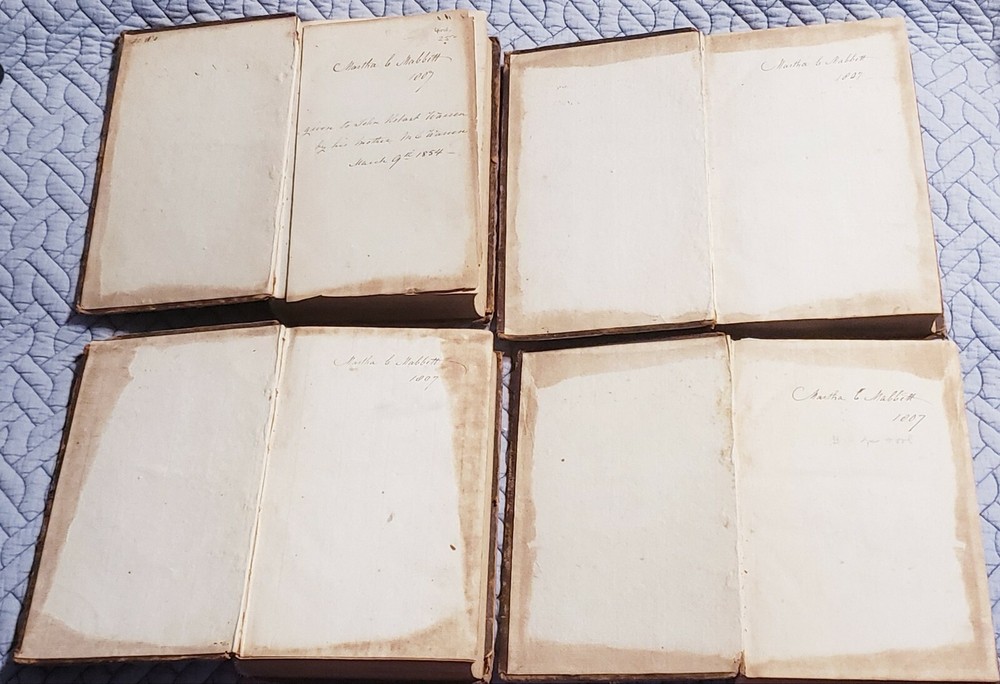 Martha C Mabbett
1807
given to John Hobart Warren
by his mother M C Warren
March 9th 1884
Martha C Mabbett
1807
Martha C Mabbett
1807
Martha C Mabbett
1807